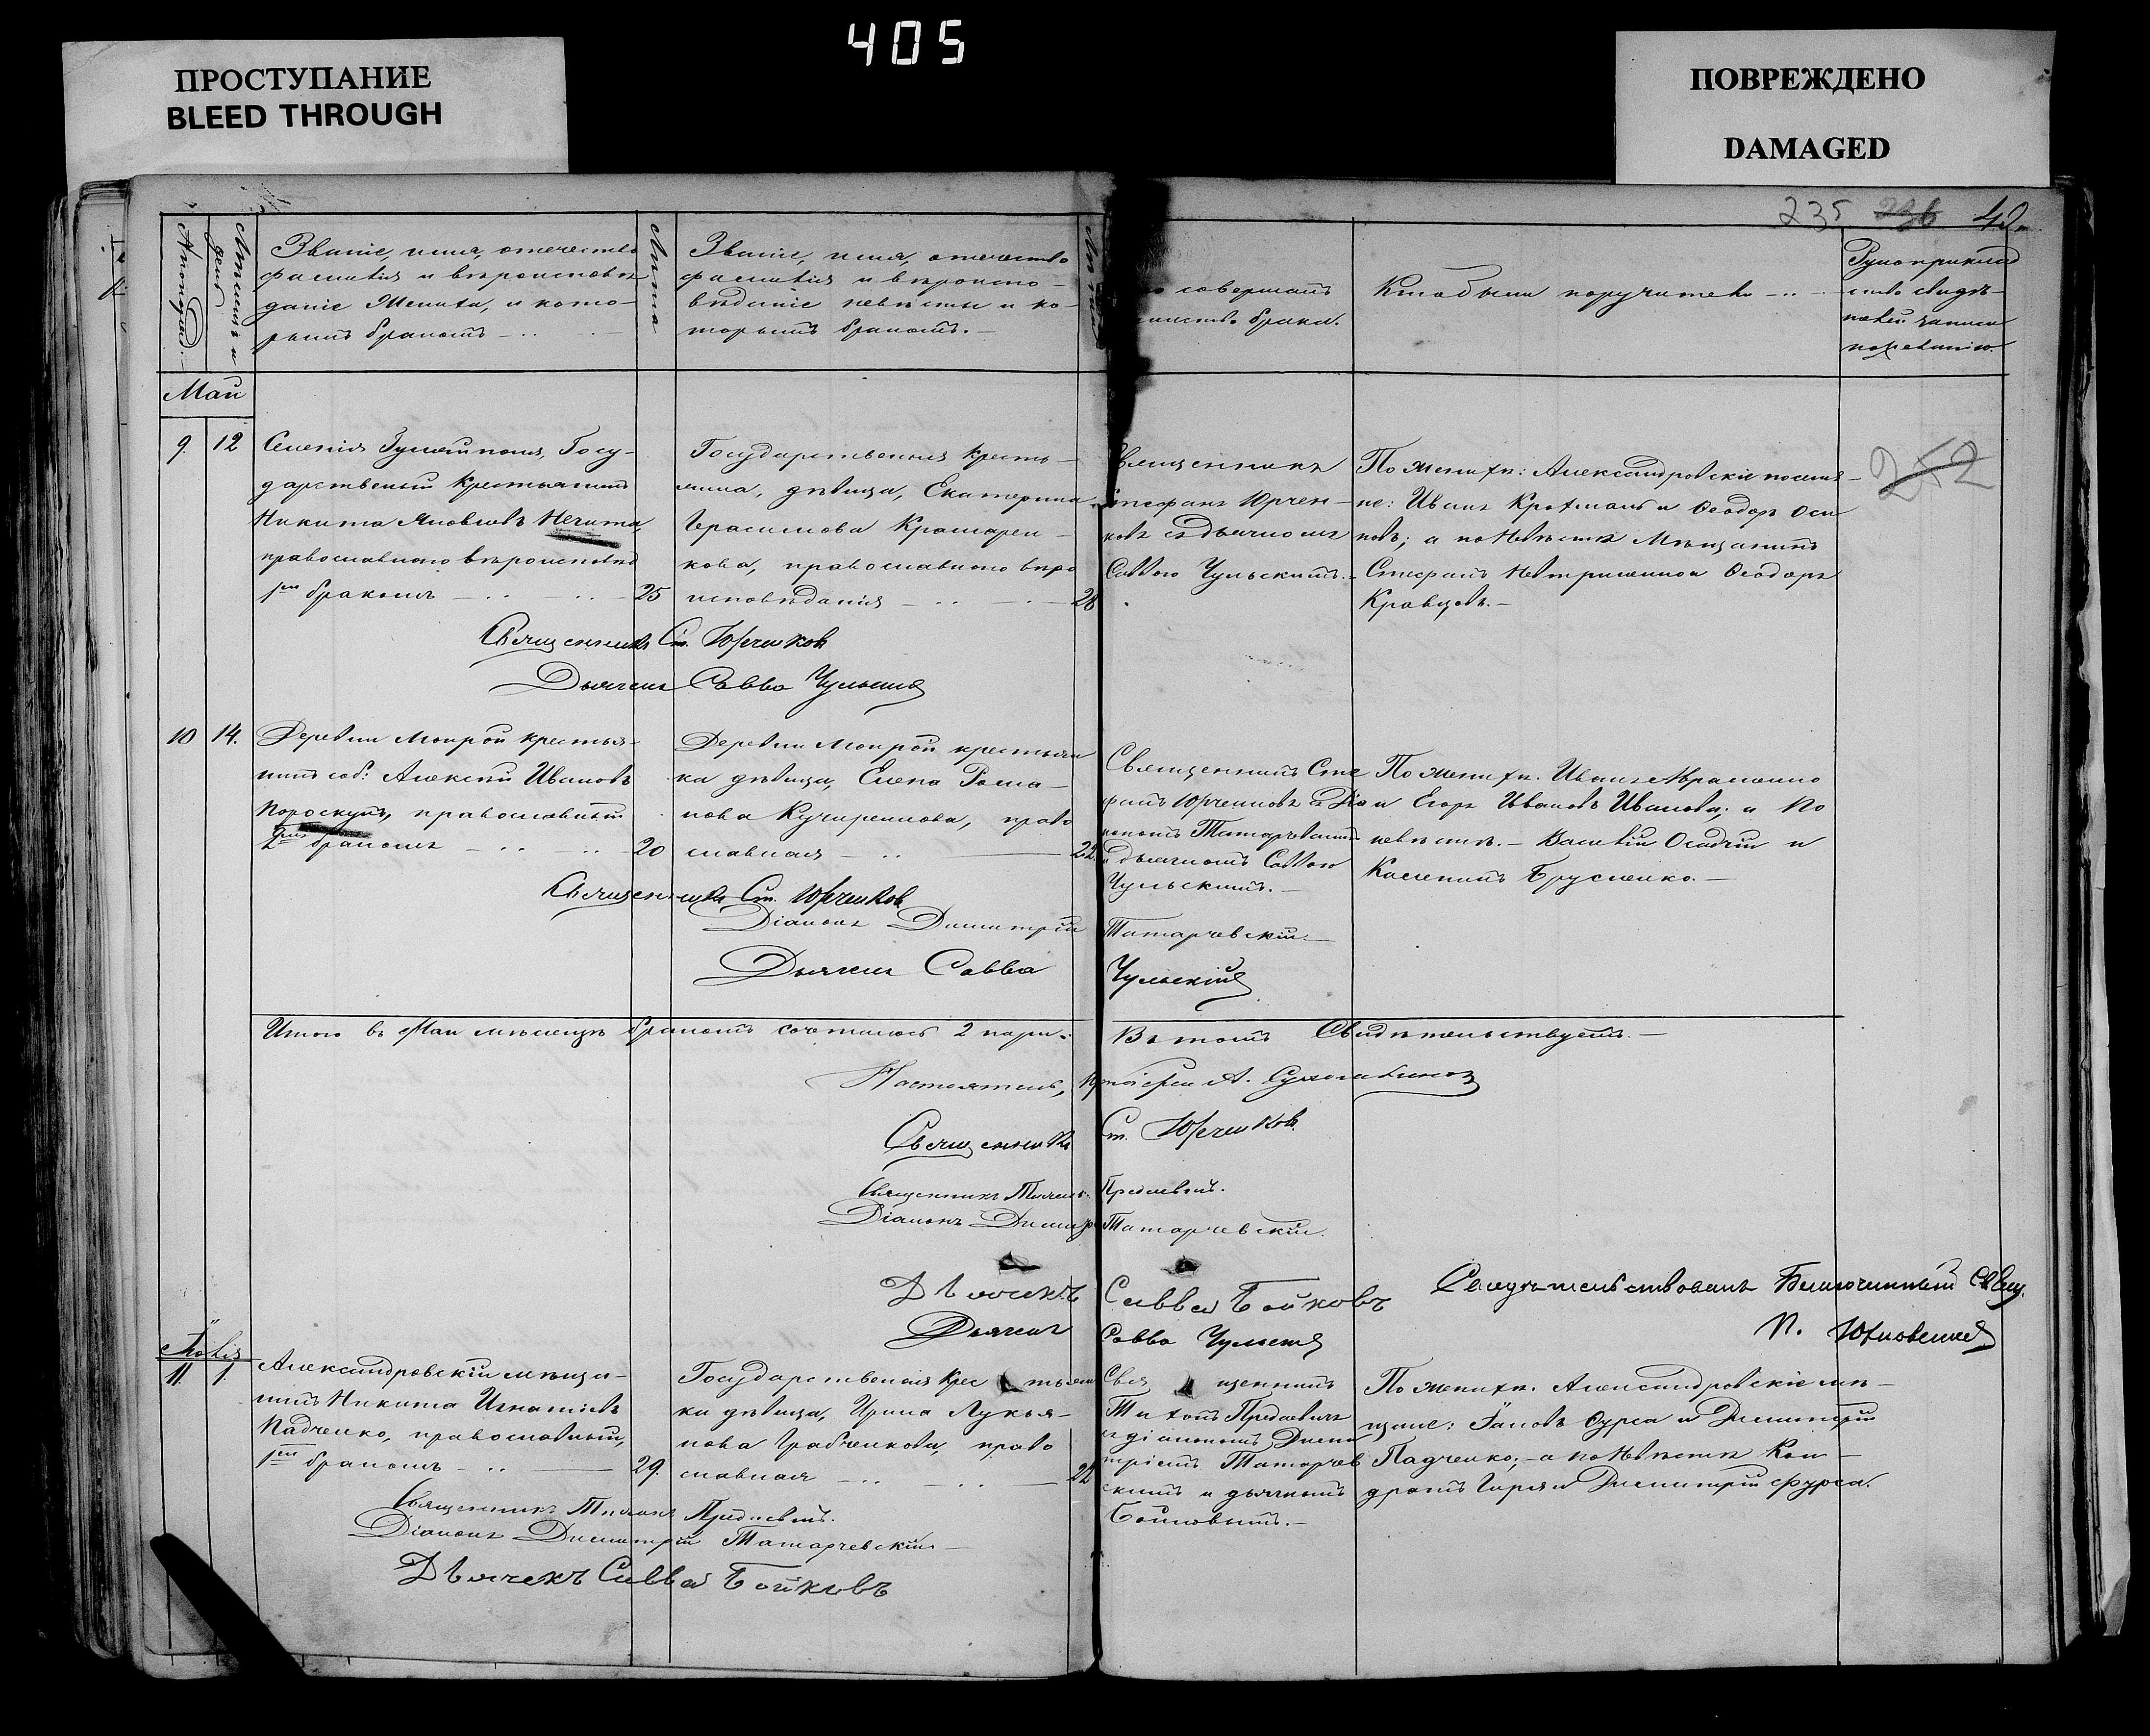 405
ПРОСТУПАНИЕ
BLEED THROUGH
ПОВРЕЖДЕНО
DAMAGED
235 236 42
Званіе, имя, отечество
фамилія и вѣроисповѣ
даніе Жениха, и кото-
рымъ бракомъ
Лѣта
Званіе, имя, отечество
фамилія и вѣроиспо-
вѣданіе невѣсты и ко-
торымъ бракомъ.
Лѣта
совершалъ
таинство брака.
Кто были поручители
Рукоприклад
ство свидѣ-
телей записи
по желанію.
Мѣсяцъ и
день
Май
9. 12
Селенія Гуляйполя, Госу-
дарственый Крестьянинъ
Никита Яковлевъ Нечита,
православнаго вѣроисповѣд
1мъ бракомъ
25
Государственая кресть-
янка, дѣвица, Екатерина
Герасимова Крамарен-
кова, православнаго вѣро
исповѣданія
28
Священникъ
Стефанъ Юрчен-
ковъ съ дьячкомъ
Саввою Чульскимъ.
По женихѣ: Александровскіе поселя-
не: Иванъ Крохмаль и Ѳеодоръ Оси
повъ; а по Невѣстѣ Мѣщанинъ
Стефанъ и Ѳеодоръ
Кравцовъ.
252
Священникъ Ст. Юрченков
Дьячекъ Савва Чульскій
10 14.
Деревни Мокрой крестья-
нинъ соб: Алексѣй Ивановъ
Пороскунъ, православный
2мъ бракомъ
20
Деревни Мокрой крестьян
ка дѣвица, Елена Рома-
нова Кучиренкова, право
славная
22.
Священникъ Сте
фанъ Юрченковъ съ Діа
кономъ Татарчевскимъ
и дьячкомъ Саввою
Чульскимъ.
По женихѣ. Иванъ Авраменко
и Егоръ Ивановъ Ивановъ; а по
невѣстѣ. Василій Осадчій и
Каленикъ Брусленко.
Священникъ Ст. Юрченков
Діаконъ Димитрій Татарчевскій.
Дьячекъ Савва Чульскій
Итого въ Маи мѣсяцѣ бракомъ сочеталось 2 пары. Въ томъ Свидѣтельствуемъ.
Настоятель, Протоіерей А.
Священникъ Ст. Юрченков.
Священникъ Тихонъ Предаевичъ.
Діаконъ Димитр Татарчевскій.
Дьячекъ Савва Бойковъ
Дьячекъ Савва Чульскій
Свидѣтельствовалъ Благочинный Свящ.
П. Юхновскій
Іюня
11. 1.
Александровскій мѣща-
нинъ Никита Игнатіевъ
Падченко, православный,
1мъ бракомъ
29.
Государственая крестьян
ка дѣвица, Ирина Лукья-
нова Грабченкова, право
славная
22
Священникъ
Тихонъ Предаевичъ
съ діакономъ Дими
тріемъ Татарчев
скимъ и дьячкомъ
Бойковымъ.
По женихѣ. Александровскіе мѣ-
щане: Яковъ Фурса и Димитрій
Падченко; а по Невѣстѣ Кон-
дратъ и Димитрій Фурса.
Священникъ Тихонъ Предаевичъ.
Діаконъ Димитрій Татарчевскій
Дьячекъ Савва Бойковъ